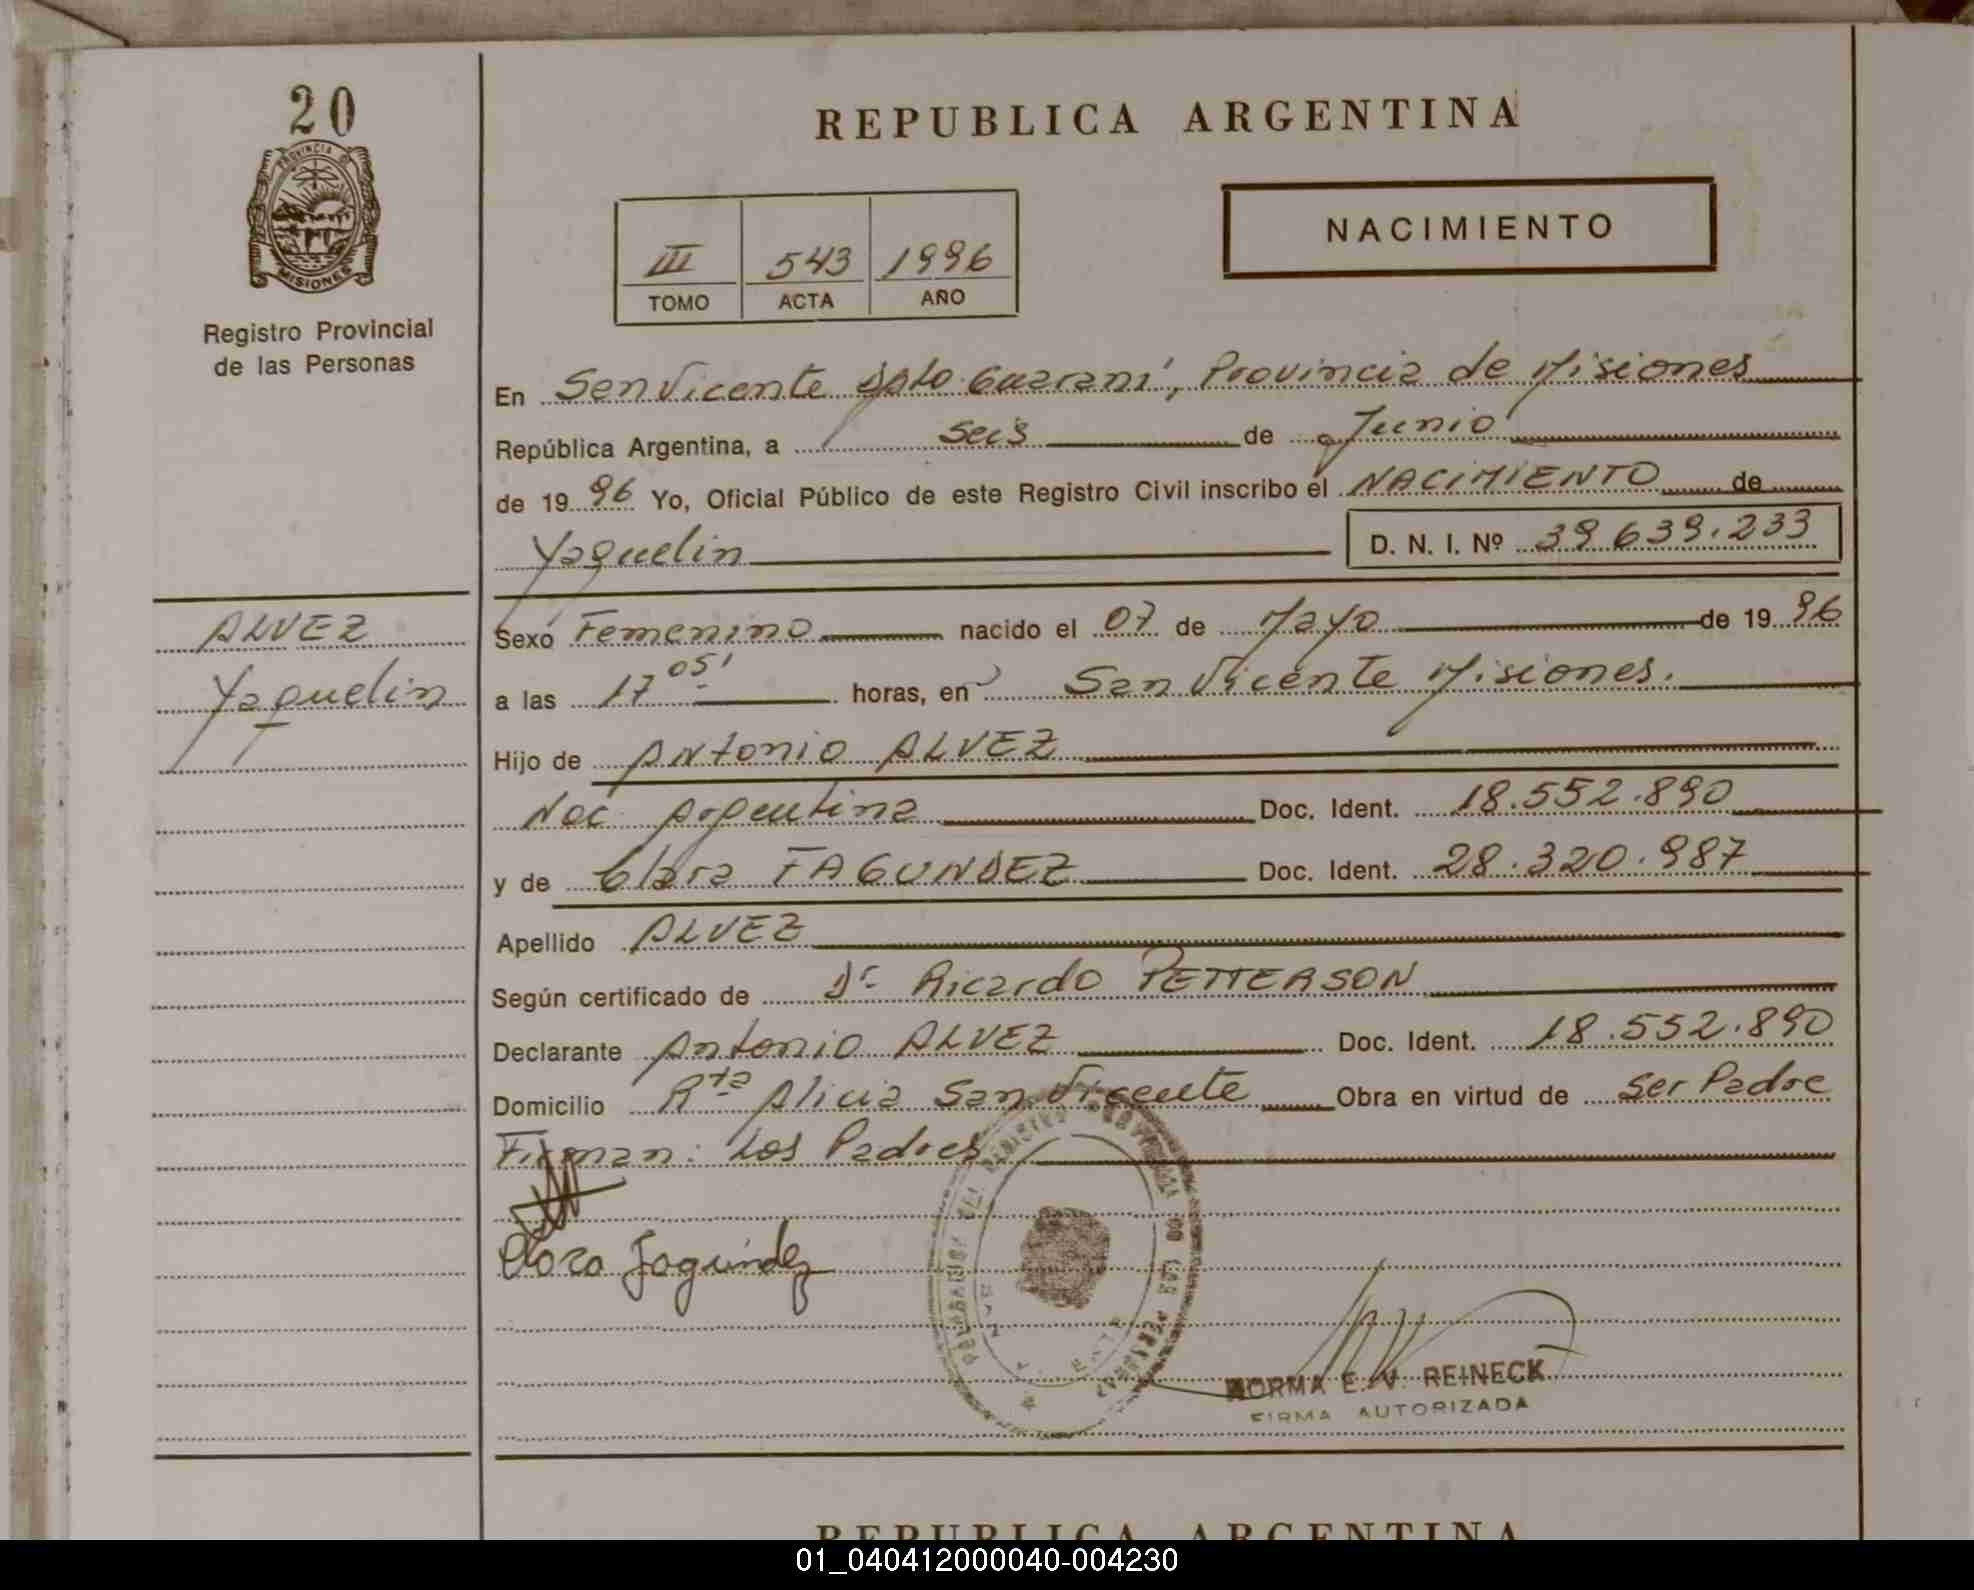 20
PROVINCIA D
MISIONES
Registro Provincial
de las Personas
REPUBLICA ARGENTINA
NACIMIENTO
III 543 1996
TOMO ACTA AÑO
En San Vicente Dpto Guaraní, Provincia de Misiones
República Argentina, a seis de Junio
de 1996 Yo, Oficial Público de este Registro Civil inscribo el NACIMIENTO de
Yaquelin D. N. I. Nº 39.639.233
ALVEZ
Yaquelin
Sexo Femenino nacido el 07 de Mayo de 1996
a las 17 05' horas, en San Vicente Misiones.
Hijo de Antonio ALVEZ
Nac. Argentina Doc. Ident. 18.552.890
y de Clara FAGUNDEZ Doc. Ident. 28.320.987
Apellido ALVEZ
Según certificado de Dr Ricardo PETTERSON
Declarante Antonio ALVEZ Doc. Ident. 18.552.890
Domicilio Rta Alicia San Vicente Obra en virtud de Ser Padre
Firman: Los Padres
Clara Fagúndez
NORMA E. V. REINECK
FIRMA AUTORIZADA
REPUBLICA ARGENTINA
01_040412000040-004230